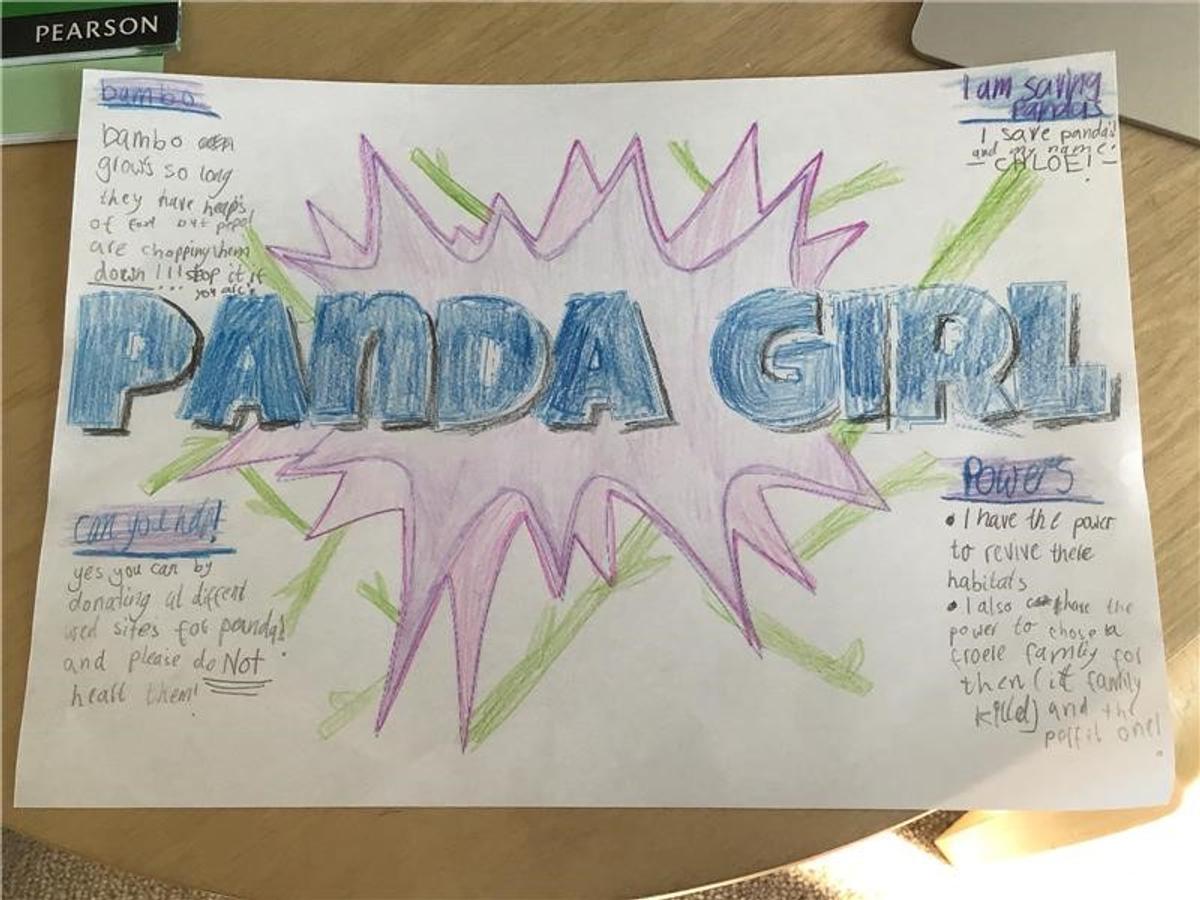 PEARSON
bambo
bambo
grows so long
they have heaps
of food but pepol
are chopping them
down!!! stop it if
you are!
I am saving
pandas
I save panda's
and my name:
- CHLOE! -
PANDA GIRL
can you help!
yes you can by
donating at diffent
sites for panda's!
and please do Not
heart them!
Powers
• I have the power
to revive there
habitats
• I also have the
power to chose a
family for
then (if family
killed) and the
one!